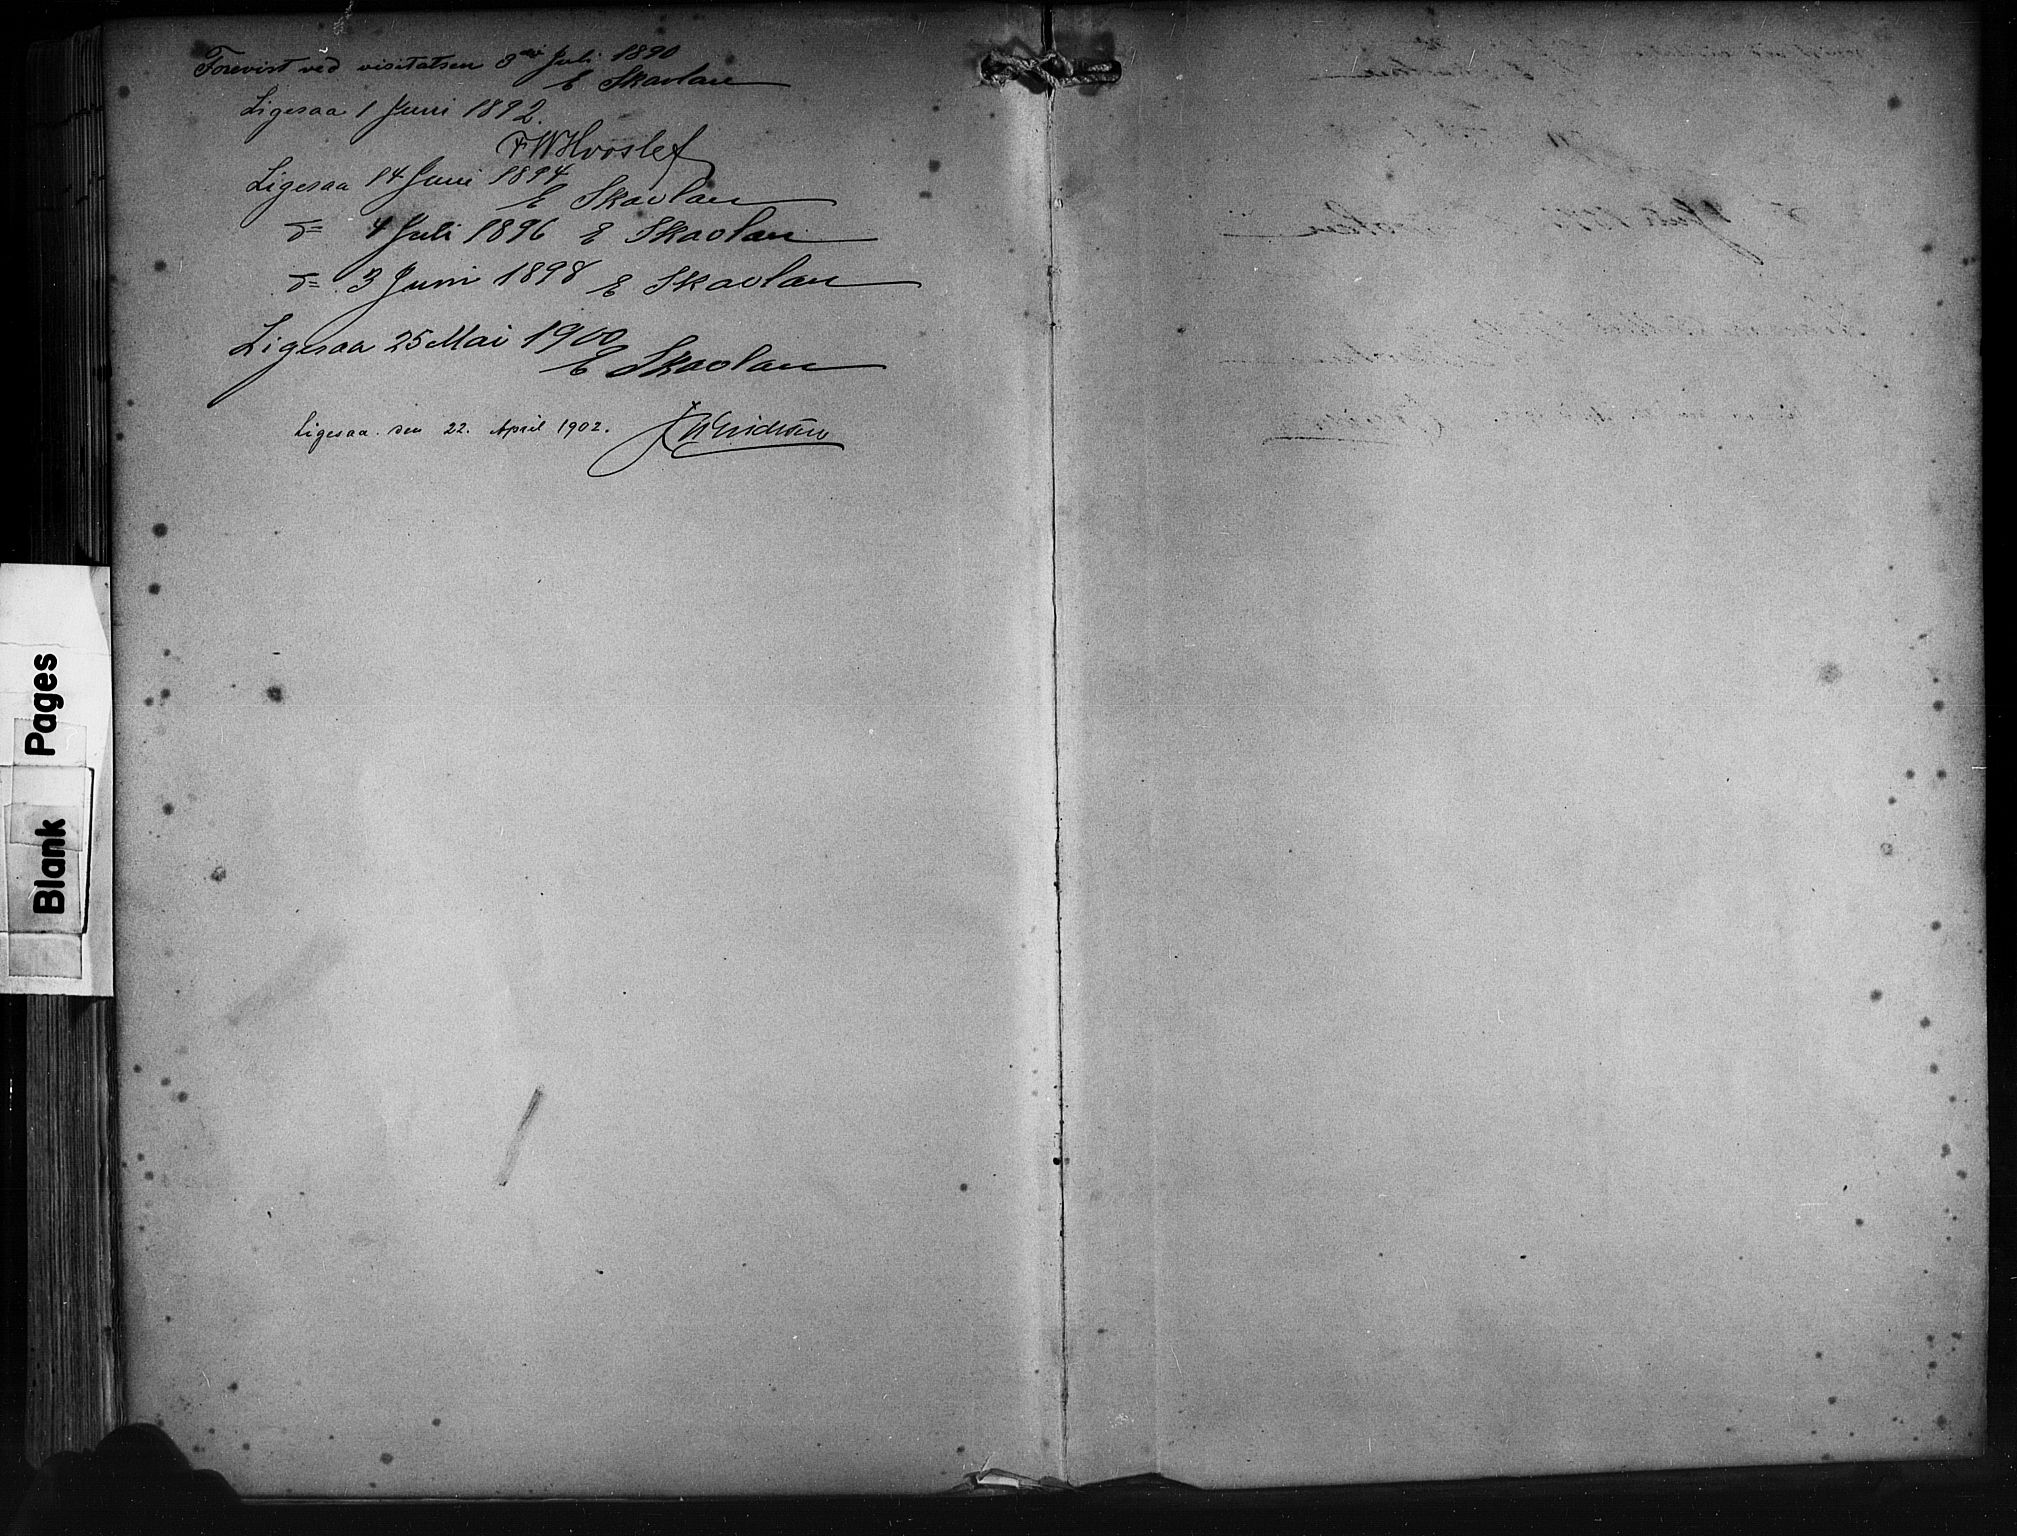 Forevist ved visitatsen 3die Juli 1890
E Skavlan
Ligesaa 1 Juni 1892.
FWHvoslef
Ligesaa 14 Juni 1894
E Skavlan
do 4 Juli 1896 E Skavlan
do 3 Juni 1898 E Skavlan
Ligesaa 25 Mai 1900
E Skavlan
Ligesaa den 22. April 1902.
Blank Pages